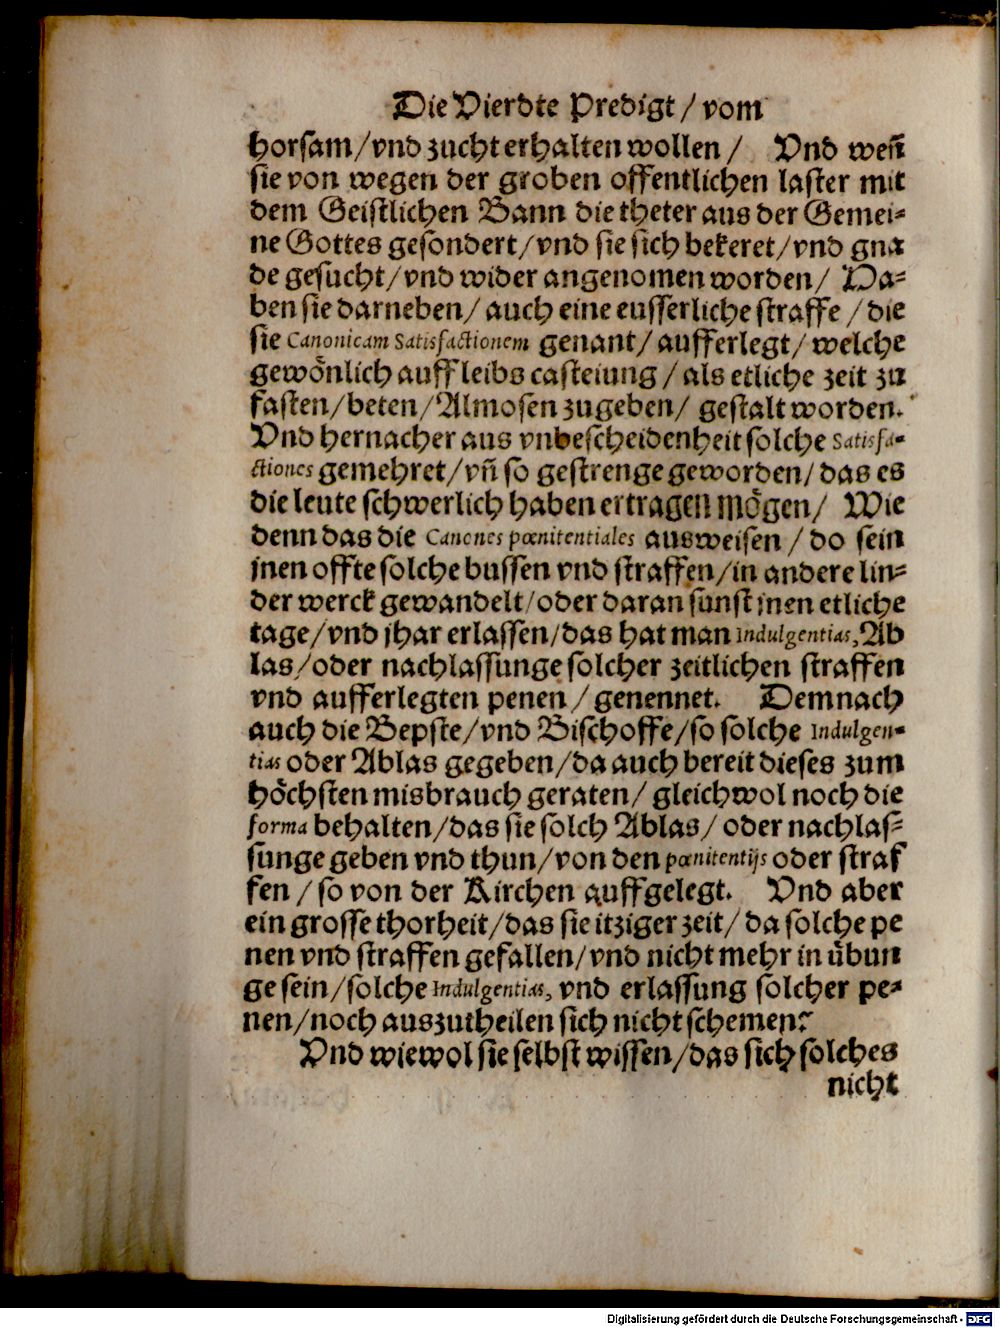 Die Vierdte Predigt / vom
horsam/vnd zucht erhalten wollen / Vnd weñ
sie von wegen der groben offentlichen laster mit
dem Geistlichen Bann die theter aus der Gemei-
ne Gottes gesondert/vnd sie sich bekeret/vnd gna
de gesucht/vnd wider angenomen worden/ Ha-
ben sie darneben/ auch eine eusserliche straffe / die
sie Canonicam Satisfactionem genant/ aufferlegt/ welche
gewönlich auff leibs casteiung / als etliche zeit zu
fasten/beten/Almosen zugeben/ gestalt worden.
Vnd hernacher aus vnbescheidenheit solche Satisfa-
ctiones gemehret/vñ so gestrenge geworden/das es
die leute schwerlich haben ertragen mögen/ Wie
denn das die Canones pœnitentiales ausweisen / do sein
jnen offte solche bussen vnd straffen/in andere lin-
der werck gewandelt/oder daran sunst jnen etliche
tage/vnd jhar erlassen/das hat man Indulgentias, Ab
las/oder nachlassunge solcher zeitlichen straffen
vnd aufferlegten penen / genennet. Demnach
auch die Bepste/vnd Bischoffe/so solche Indulgen-
tias oder Ablas gegeben/da auch bereit dieses zum
höchsten misbrauch geraten/ gleichwol noch die
forma behalten/das sie solch Ablas/ oder nachlas-
sunge geben vnd thun/von den pœnitentijs oder straf
fen / so von der Kirchen auffgelegt. Vnd aber
ein grosse thorheit/das sie itziger zeit/ da solche pe
nen vnd straffen gefallen/vnd nicht mehr in übun
ge sein/solche Indulgentias, vnd erlassung solcher pe-
nen/noch auszutheilen sich nicht schemen?
Vnd wiewol sie selbst wissen/das sich solches
nicht
Digitalisierung gefördert durch die Deutsche Forschungsgemeinschaft - DFG